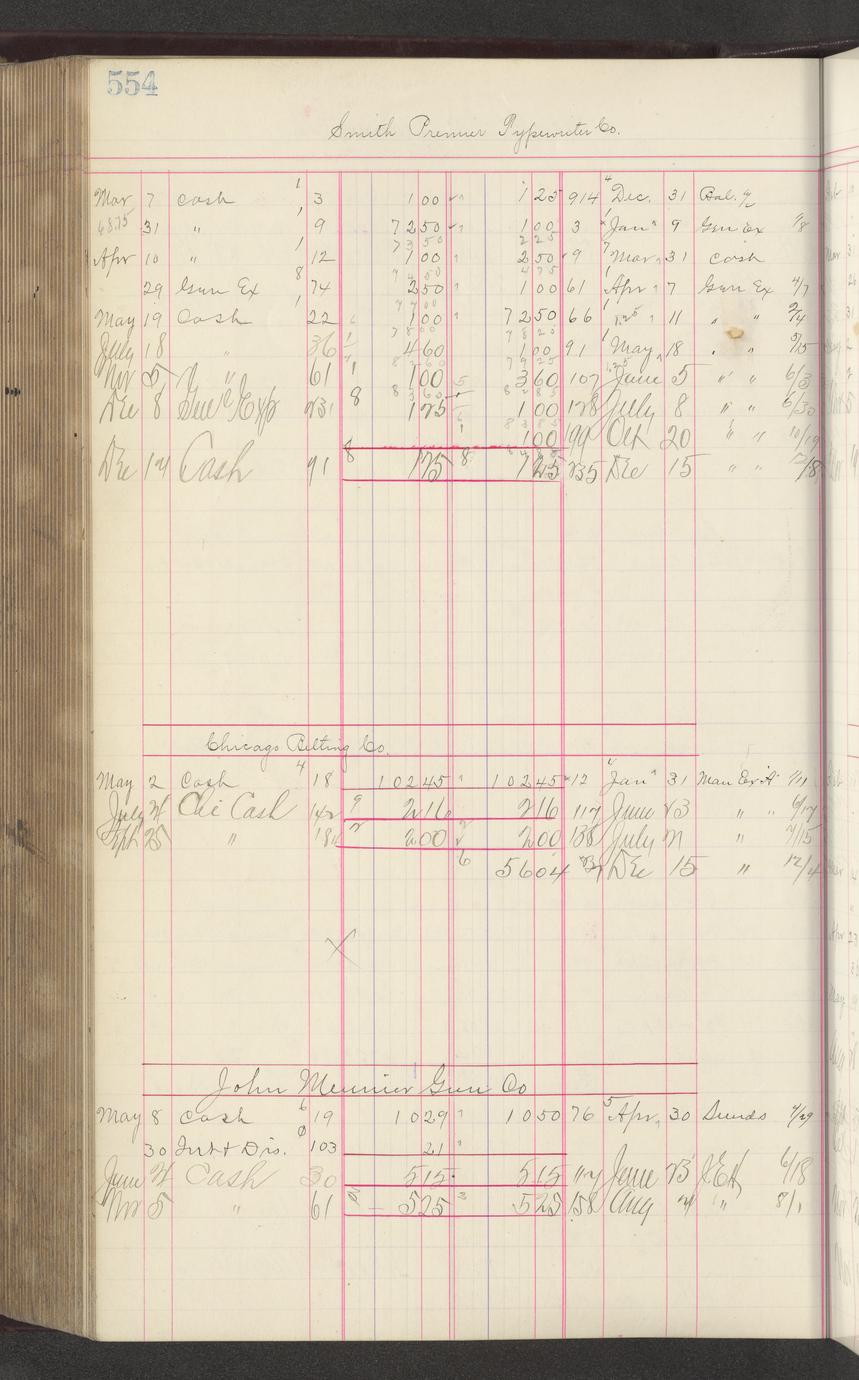 554
Smith Premier Typewriter Co.
Mar 7 Cash 3 1 00 1 25 914 Dec. 31 Bal.
68.75 31 " 9 72 50 1 00 3 Jan 9 Gen Ex 1/8
Apr 10 " 12 1 00 2 50 9 Mar 31 Cash
29 Gen Ex 74 2 50 1 00 61 Apr 7 Gen Ex 4/7
May 19 Cash 22 1 00 72 50 66 11 " "
July 18 " 36 4 60 1 00 91 May 18 " " 5/15
Nov 5 " 61 1 00 3 60 107 June 5 " " 6/3
Dec 8 231 1 25 1 00 128 July 8 " " 6/30
1 00 199 Oct 20 " " 10/19
Dec 14 Cash 91 1 75 235 Dec 15 " "
Chicago Belting Co.
May 2 Cash 18 102 45 102 45 12 Jan 31 Man Ex A 1/11
July Chi Cash 142 2 16 2 16 117 June 23 " " 6/17
25 " 2 00 2 00 138 July " 7/15
56 04 Dec 15 " 12/4
X
John Meunier Gun Co
May 8 Cash 19 10 29 10 50 76 Apr. 30 Sunds 4/29
30 Int & Dis. 103 21
June Cash 30 5 15 5 15 117 June 23 J.E.H. 6/18
Nov 5 " 61 5 25 5 25 158 Aug " 8/1